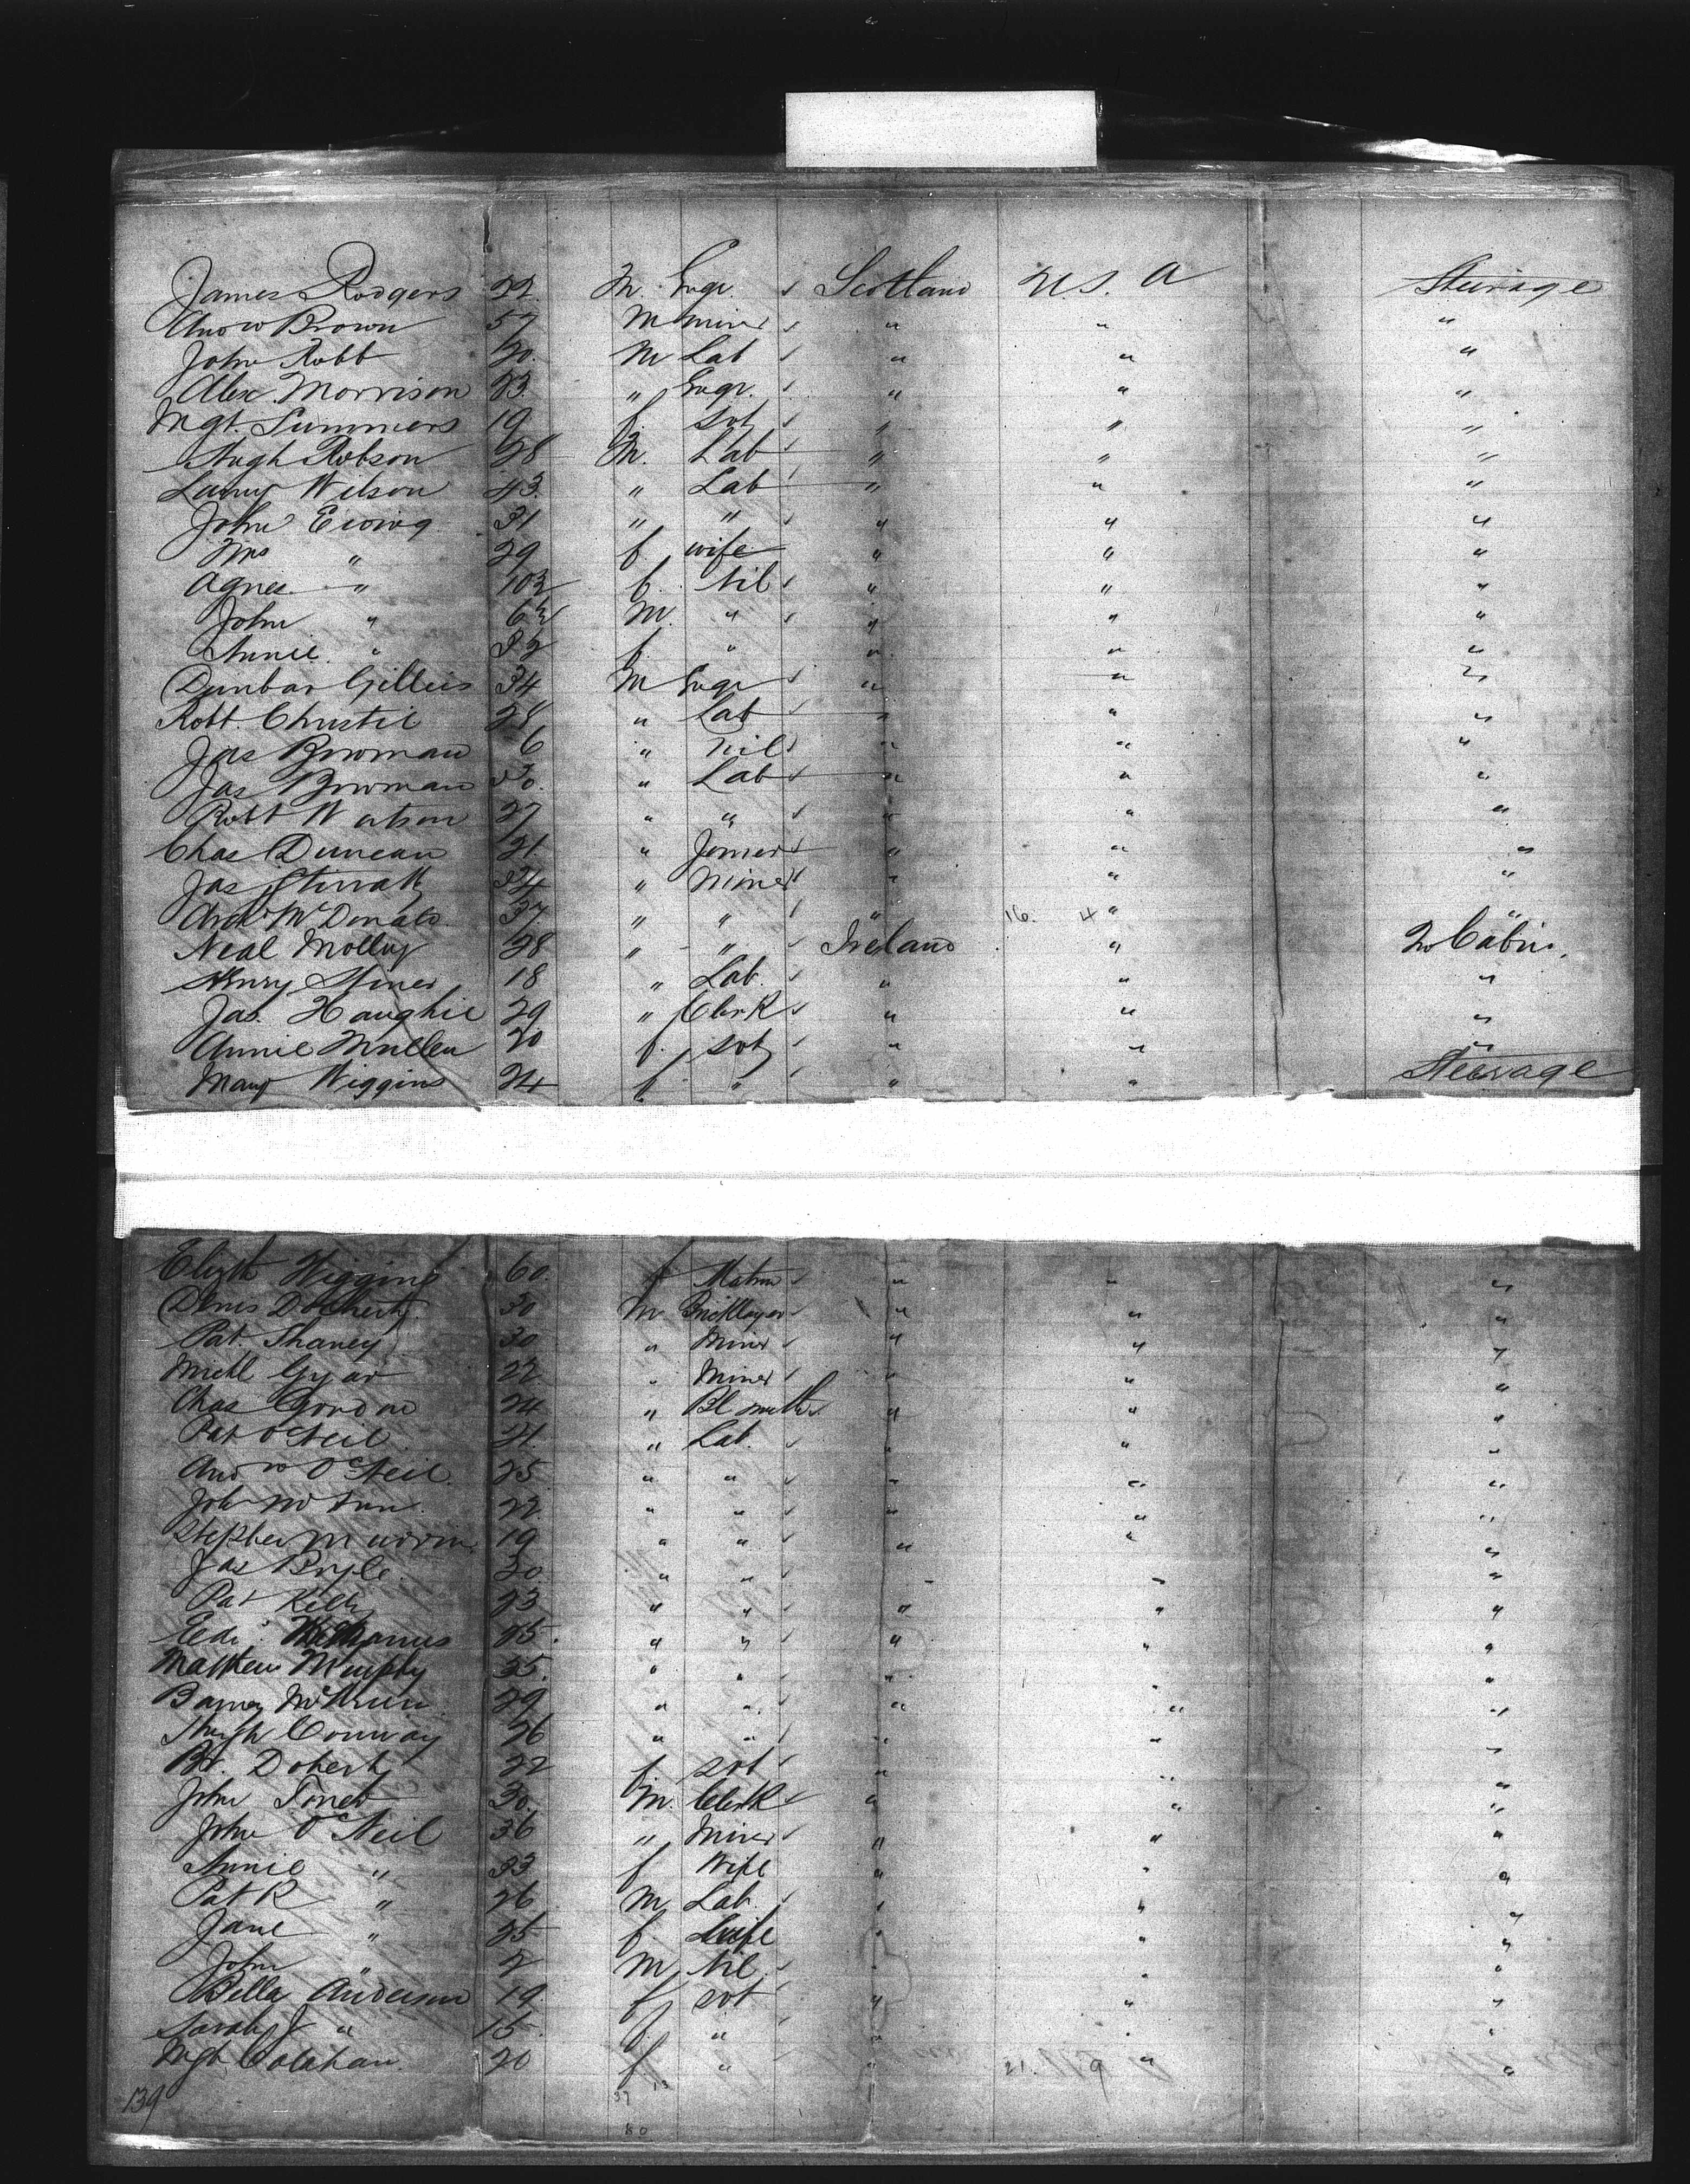 James Rodgers 22 M. Engr. Scotland U.S.A Steerage
Andw Brown 57 M miner " " "
John Robb 20. M Lab " " "
Alex. Morrison 23. " Engr. " " "
Mgt. Summers 19 f. svt " " "
Hugh Robson 28 M. Lab " " "
Wilson 43. " Lab " " "
John Ewing 31 " " " " "
Mrs " 29 f. wife " " "
Agnes " f. Nil " " "
John " M. " " " "
Annie " f. " " " "
Dunbar Gillies 34 M Engr " " "
Robt. Christie 28 " Lab " " "
Jas Bowman 6 " nil " " "
Jas Bowman 30. " Lab " " "
Robt Watson 27 " " " " "
Chas Duncan 21 " Joiner " " "
Jas 34 " Miner " " "
Archd McDonald 37 " " " 16. 4 " "
Neal Molloy 28 " " Ireland " 2nd Cabin.
Henry 18 " Lab. " " "
Jas. Haughie 29 " Clerk " " "
Annie Mullen 20 f. svt " " "
Mary Wiggins 24 f. " " " Steerage
Elizth Wiggins 60. f " " "
Denis Docherty 30 M. Bricklayer " " "
Pat. 30 " Miner " " "
Michl 22 " Miner " " "
Chas Gordon 24 " Bl smith " " "
Pat O'Neil 21. " Lab. " " "
Andw O'Neil 25 " " " " "
John 22. " " " " "
Stephen 19 " " " " "
Jas 30 " " " " "
Pat Kelly 23 " " " " "
McManus 25. " " " " "
Matthew Murphy 35. " " " " "
Barney 29 " " " " "
Hugh Conway 26 " " " " "
Doherty 22 f svt " " "
John 30. M. Clerk " " "
John O'Neil 36 " Miner " " "
Annie " 33 f Wife " " "
Patk " 26 M Lab. " " "
Jane " 25 f. Wife " " "
John " 2 M Nil. " " "
Bella Anderson 19 f svt " " "
Sarah J " 15. f. " " " "
Mgt Calahan 20 f " " 12. 9 " "
139 37 13
80